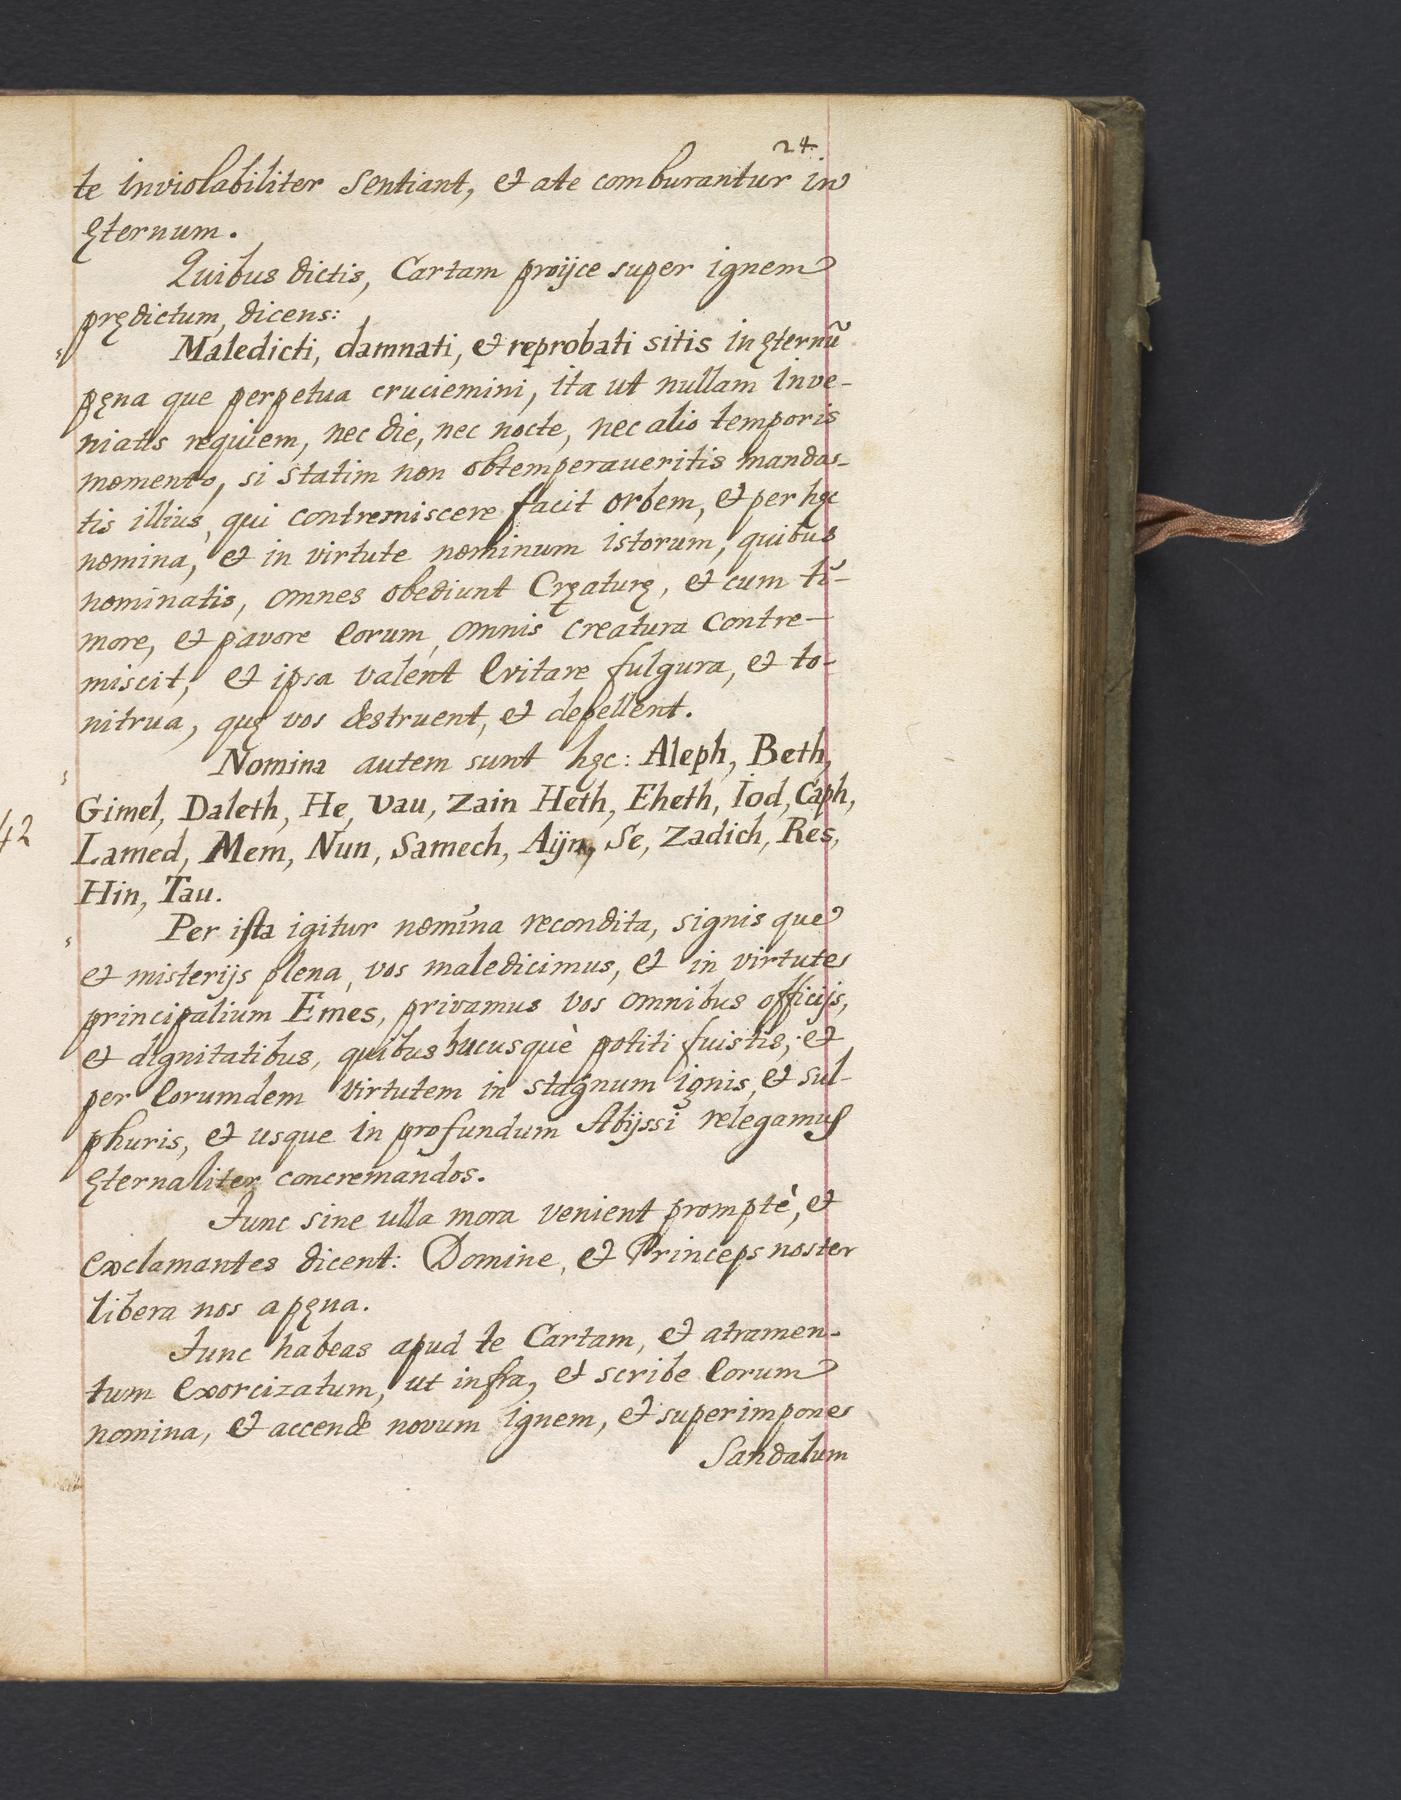 24.
te inviolabiliter sentiant, et a te comburantur in
ęternum.
Quibus dictis, Cartam proijce super ignem
prędictum, dicens:
Maledicti, damnati, et reprobati sitis in ęternũ
pęna que perpetua cruciemini, ita ut nullam inve-
niatis requiem, nec die, nec nocte, nec alio temporis
momento, si statim non obtemperaveritis manda-
tis illius, qui contremiscere facit orbem, et per hęc
nomina, et in virtute nominum istorum, quibus
nominatis, omnes obediunt Cręaturę, et cum ti-
more, et pavore eorum, omnis creatura contre-
miscit, et ipsa valent evitare fulgura, et to-
nitrua, quę vos destruent, et depellent.
Nomina autem sunt hęc: Aleph, Beth,
Gimel, Daleth, He, Vau, Zain Heth, Eheth, Iod, Caph,
42
Lamed, Mem, Nun, Samech, Aijn, Se, Zadich, Res,
Hin, Tau.
Per ista igitur nomina recondita, signis que
et misterijs plena, vos maledicimus, et in virtute
principalium Emes, privamus vos omnibus officijs,
et dignitatibus, quibus hucusquè potiti fuistis; et
per eorumdem virtutem in stagnum ignis, et sul-
phuris, et usque in profundum Abijssi relegamus
ęternaliter concremandos.
Tunc sine ulla mora venient promptè, et
exclamantes dicent: Domine, et Princeps noster
libera nos a pęna.
Tunc habeas apud te Cartam, et atramen-
tum exorcizatum, ut infra, et scribe eorum
nomina, et accende novum ignem, et superimpone
Sandalum